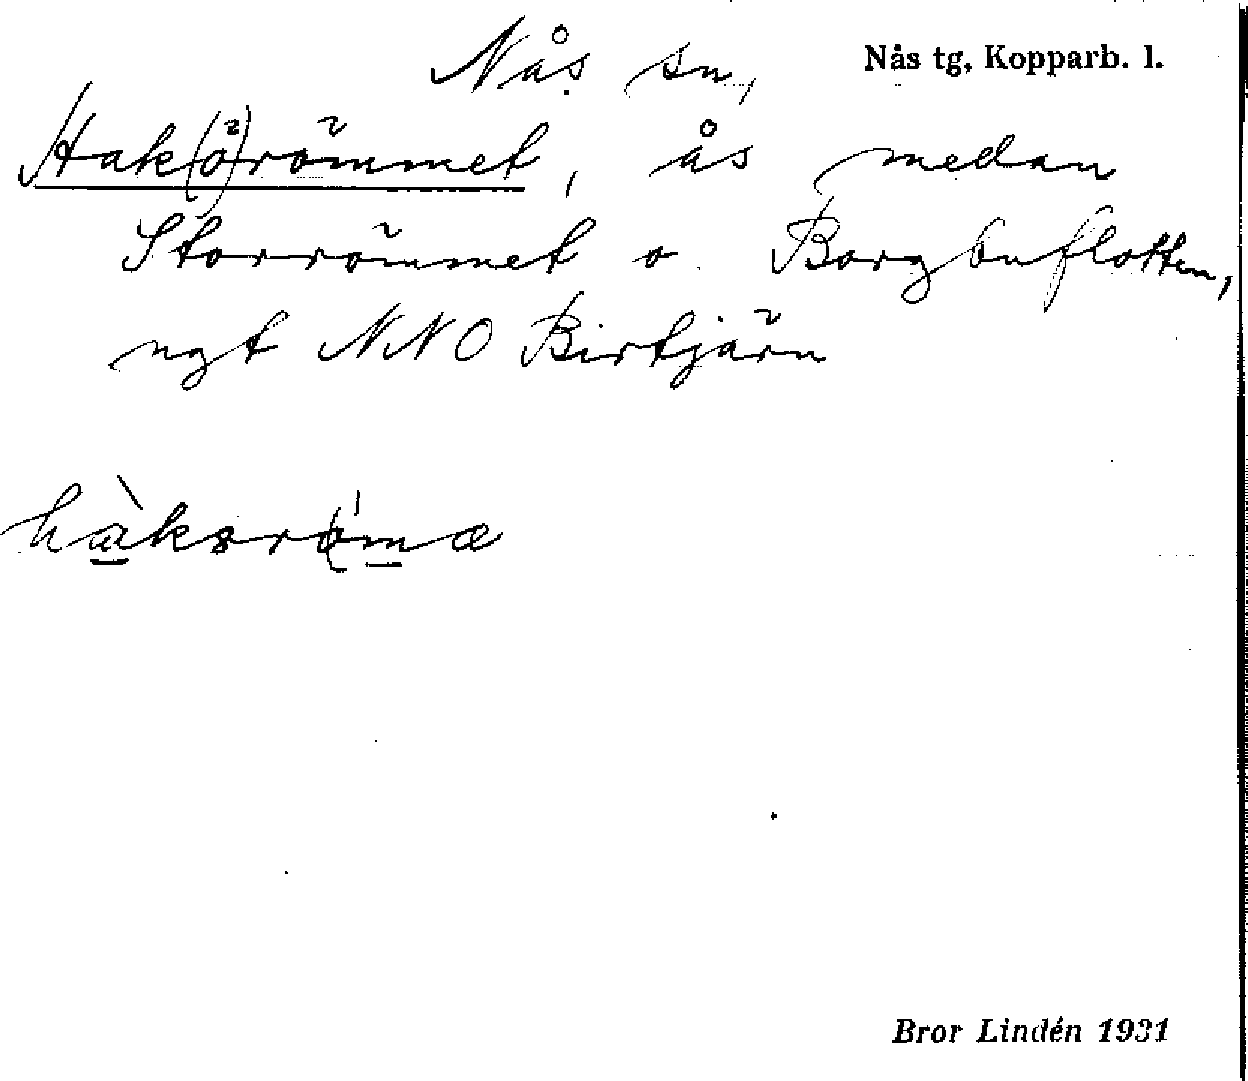 Nås sn, Nås tg, Kopparb. l.
Hak(ö)römmet, ås medan
Storrömmet o. Borgbuflotten,
ngt NNO Birtjärn
Bror Lindén 1931